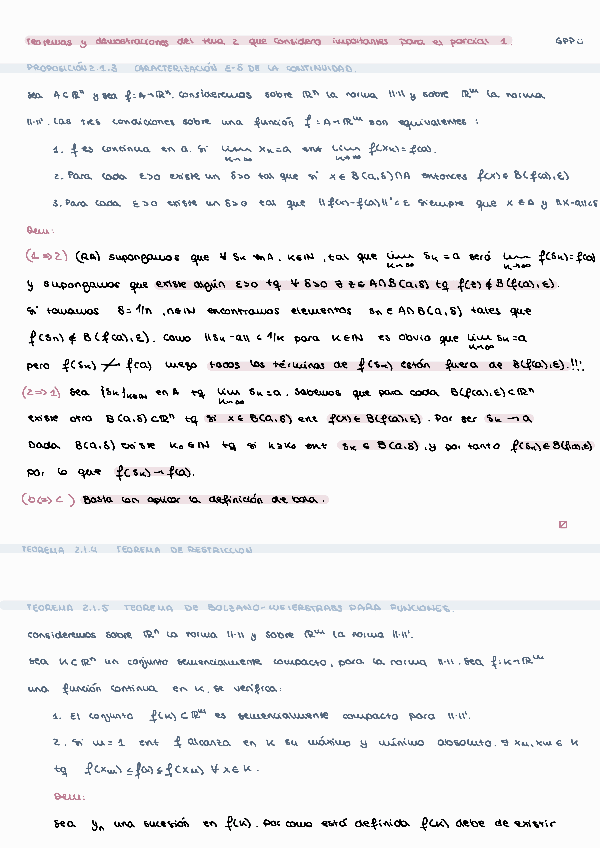 Teoremas y demostraciones del tema 2 que considero importantes para el parcial 1.
PROPOSICIÓN 2.1.3 CARACTERIZACIÓN ε-δ DE LA CONTINUIDAD.
Sea A⊂ℝⁿ y sea f:A→ℝᵐ. Consideremos sobre ℝⁿ la norma ||·|| y sobre ℝᵐ la norma
||·||'. Las tres condiciones sobre una función f:A→ℝᵐ son equivalentes:
1. f es continua en a. Si lim xₖ=a ent lim f(xₖ)=f(a).
k→∞ k→∞
2. Para cada ε>0 existe un δ>0 tal que si x∈B(a,δ)∩A entonces f(x)∈B(f(a),ε)
3. Para cada ε>0 existe un δ>0 tal que ||f(x)-f(a)||'<ε siempre que x∈A y ||x-a||<δ
Dem:
(1⇒2) (RA) supongamos que ∀ sₖ en A, k∈ℕ, tal que lim sₖ=a será lim f(sₖ)=f(a)
k→∞ k→∞
y supongamos que existe algún ε>0 tq ∀ δ>0 ∃ z∈A∩B(a,δ) tq f(z)∉B(f(a),ε).
Si tomamos δ=1/n, n∈ℕ encontramos elementos sₙ∈A∩B(a,δ) tales que
f(sₙ)∉B(f(a),ε). Como ||sₖ-a||<1/k para k∈ℕ es obvio que lim sₖ=a
k→∞
pero f(sₖ)↛f(a) luego todos los términos de f(sₖ) están fuera de B(f(a),ε).!!!
(2⇒1) Sea {sₖ}ₖ∈ℕ en A tq lim sₖ=a. Sabemos que para cada B(f(a),ε)⊂ℝⁿ
k→∞
existe otra B(a,δ)⊂ℝⁿ tq si x∈B(a,δ) ent f(x)∈B(f(a),ε). Por ser sₖ→a
Dada B(a,δ) existe k₀∈ℕ tq si k≥k₀ ent sₖ∈B(a,δ), y por tanto f(sₖ)∈B(f(a),ε)
por lo que f(sₖ)→f(a).
Basta con aplicar la definición de bola.
TEOREMA 2.1.4 TEOREMA DE RESTRICCIÓN
TEOREMA 2.1.5 TEOREMA DE BOLZANO-WEIERSTRASS PARA FUNCIONES.
Consideremos sobre ℝⁿ la norma ||·|| y sobre ℝᵐ la norma ||·||'.
Sea K⊂ℝⁿ un conjunto secuencialmente compacto, para la norma ||·||. Sea f:K→ℝᵐ
una función continua en K. Se verifica:
1. El conjunto f(K)⊂ℝᵐ es secuencialmente compacto para ||·||'.
2. Si m=1 ent f alcanza en K su máximo y mínimo absoluto. ∃ xₘ,x_M∈K
tq f(xₘ)≤f(x)≤f(x_M) ∀x∈K.
Dem:
Sea yₙ una sucesión en f(K). Por como está definida f(K) debe de existir